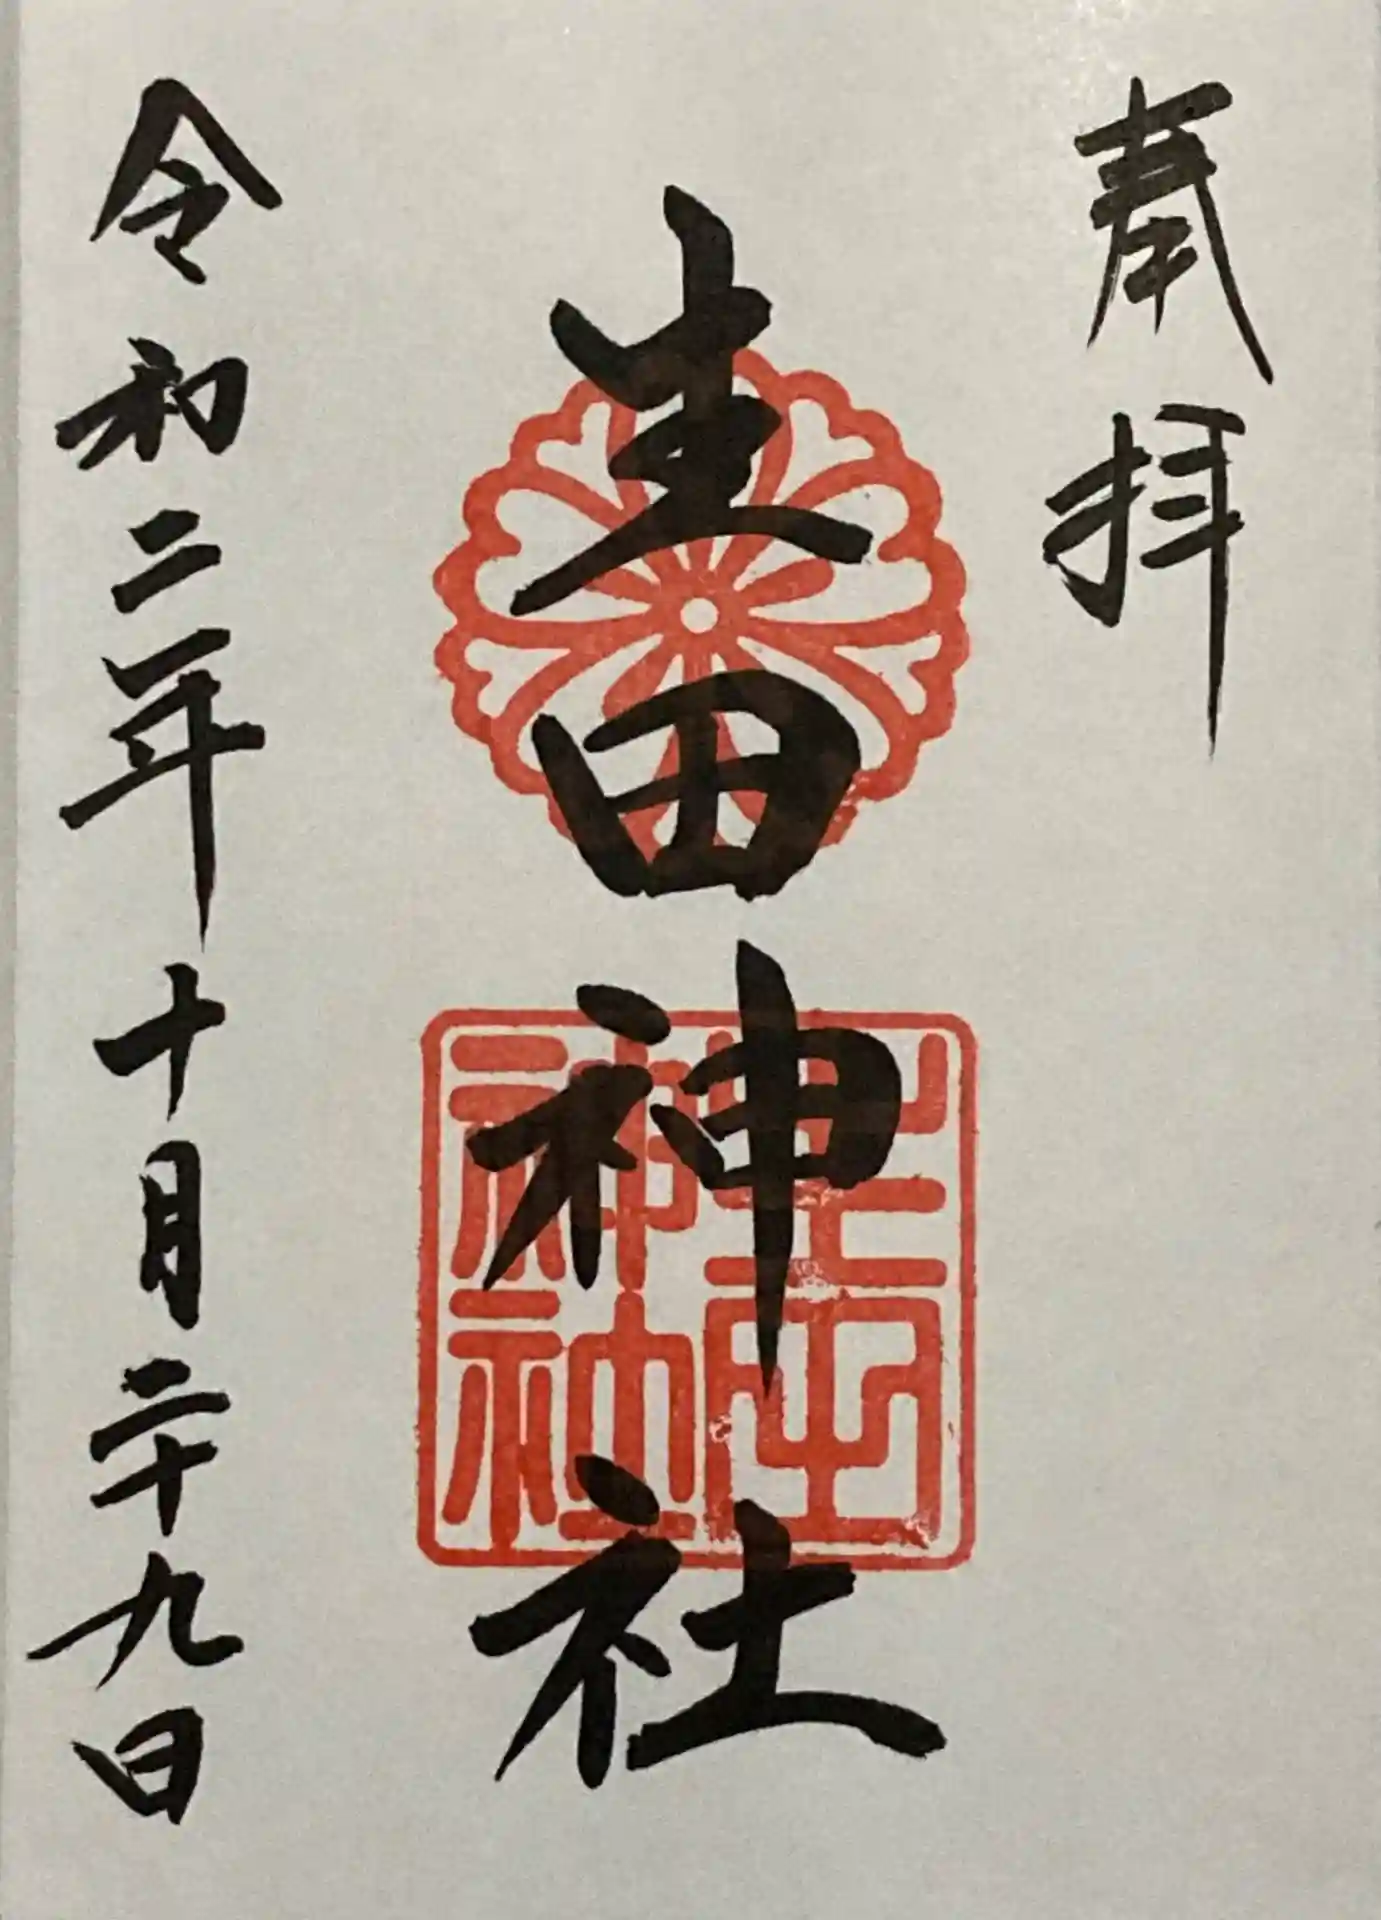 奉拝
生田神社
生田神社
令和二年十月二十九日